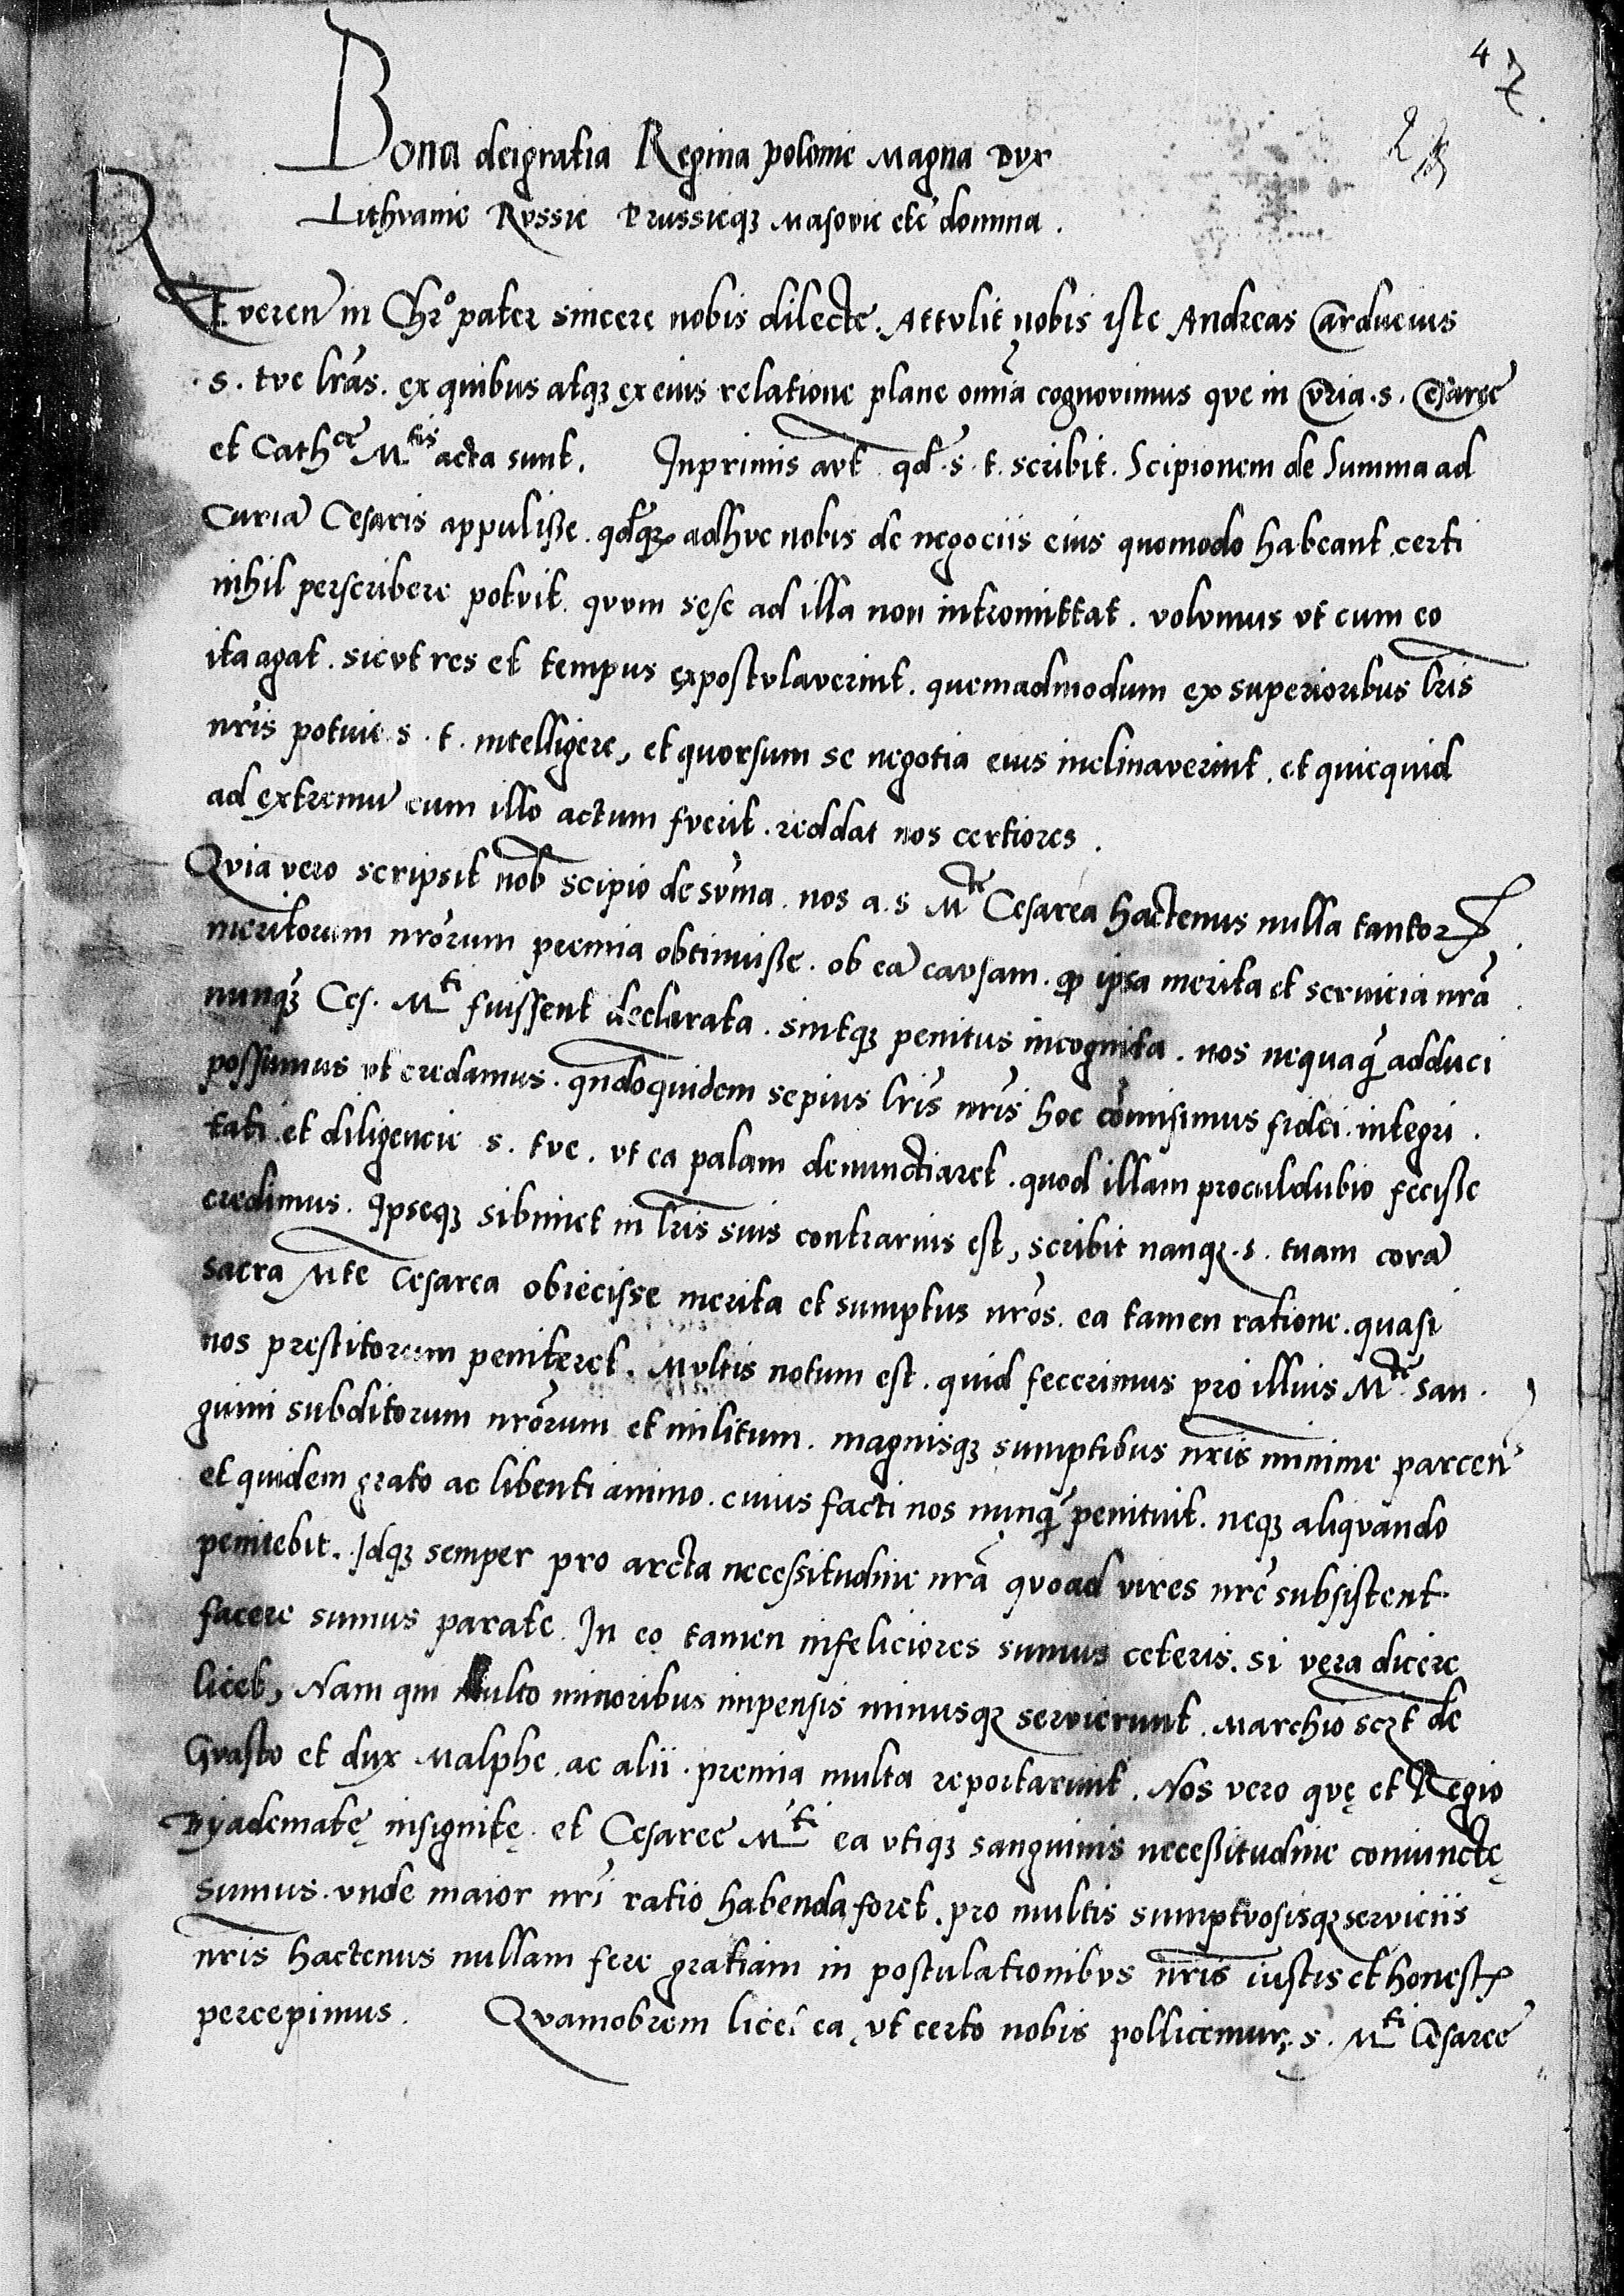 4 7.
Bona deigratia Regina polonie Magna Dux
Lithvanie Rvssie Prussieqȝ Masovie etc̃ domina.
Reveren̄ in Chr̃o pater sincere nobis dilecte. Attvlit nobis iste Andreas Carducius
s. tve lr̃as. ex quibus atqȝ ex eius relatione plane om̃ia cognovimus qve in Cvria. s. Cesareẽ
et Cathce Mtis acta sunt. Inprimis avt̃ qd̃. s. t. scribit. Scipionem de Summa ad
Curiã Cesaris appulisse. qd̃qȝ adhvc nobis de negociis eius quomodo habeant certi
nihil perscribere potvit. qvvm sese ad illa non intromittat. volvmus vt cum eo
ita agat. sicvt res et tempus expostvlaverint. quemadmodum ex superioribus lr̃is
nr̃is potvit s. t. intelligere, et quorsum se negotia eius inclinaverint. et quicquid
ad extremũ cum illo actum fverit. reddat nos certiores.
Qvia vero scripsit nob̃ scipio de sũma. nos a. s Mte Cesarea hactenus nulla tantorꝝ.
meritorum nr̃orum premia obtinuisse. ob eã cavsam. ꝙ ipsa merita et servicia nr̃a
nunqȝ Ces. Mti fuissent declarata. sintqȝ penitus incognita. nos nequaq̃ adduci
possumus vt credamus. qñdoquidem sepius lr̃is nr̃is hoc cõmisimus fidei. integri.
tati et diligencie s. tve. vt ea palam denunctiaret. quod illam proculdubio fecisse
credimus. Ipseqȝ sibimet in lr̃is suis contrarius est, scribit nanqȝ. s. tuam corã
sacra Mte Cesarea obiecisse merita et sumptus nr̃os. ea tamen ratione. quasi
nos prestitorum peniteret. Mvltis notum est. quid fecerimus pro illius Mte. san.
guini subditorum nr̃orum et militum. magnisqȝ sumptibus nr̃is minime parcen̄
et quidem grato ac libenti animo. cuius facti nos nunq̃ penituit. neqȝ aliqvando
penitebit. Idqȝ semper pro arcta necessitudine nr̃a quoad vires nr̃e subsistent
facere sumus parate. In eo tamen infeliciores sumus ceteris. si vera dicere
licet, Nam qui Multo minoribus impensis minusqȝ servierunt. Marchio sczt de
Gvasto et dux Malphe. ac alii. premia multa reportarunt. Nos vero quę et Regio
Dyadematę insignitę. et Cesaree Mti ea vtiqȝ sanguinis necessitudine coniunctę
sumus. vnde maior nr̃i ratio habenda foret. pro multis sumptvosisqȝ serviciis
nr̃is hactenus nullam fere gratiam in postulationibvs nr̃is iustis et honestꝭ
percepimus. Qvamobrem licet ea, vt certo nobis pollicemur, s. Mti Cesareẽ